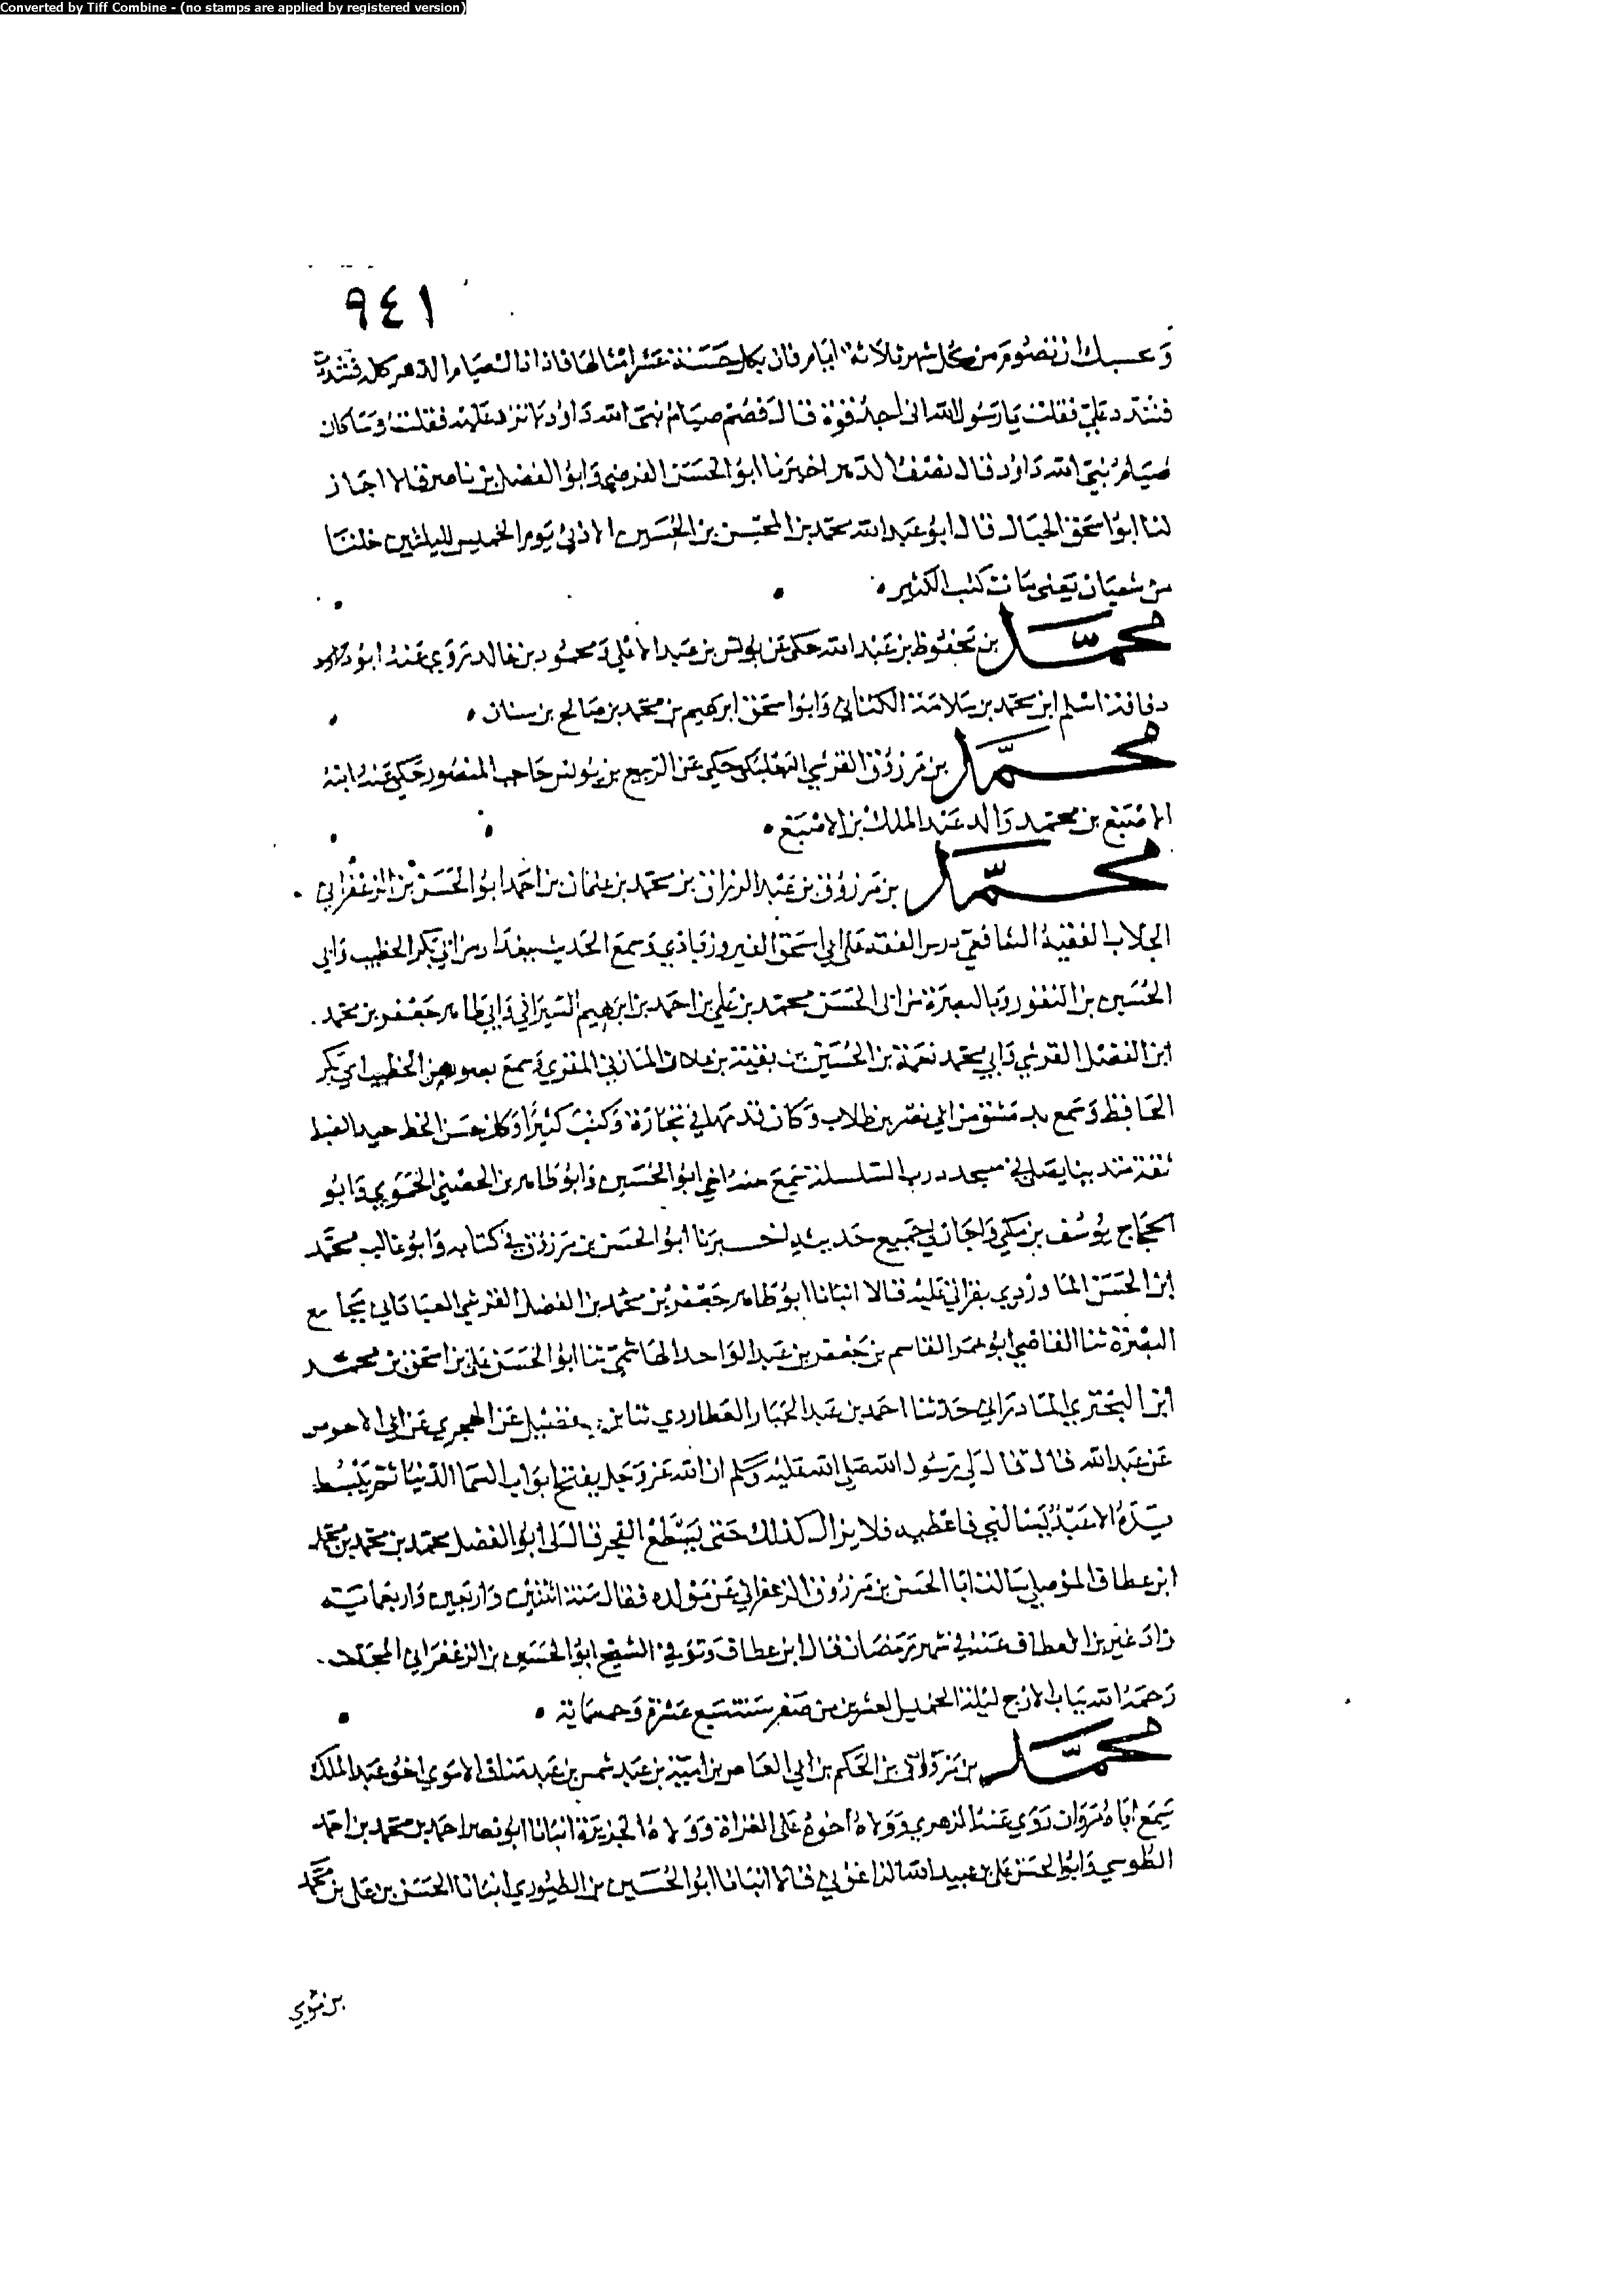 Converted by Tiff Combine - (no stamps are applied by registered version)
٩٤١
وحسبك ان تصوم من كل شهر ثلاثة ايام فان بكل حسنة عشر امثالها فاذا ذاك صيام الدهر كله فشددت
فشدد علي فقلت يا رسول الله اني اجد قوة قال فصم صيام نبي الله داود ولا تزد عليه فقلت وما كان
صيام نبي الله داود قال نصف الدهر اخبرنا ابو الحسن الفرضي وابو الفضل بن ناصر قالا اجاز
لنا ابو اسحق الحبال قال ابو عبد الله محمد بن المحسن بن الحسين الاذني يوم الخميس لليلتين خلتا
من شعبان يعني مات كتب الكثير
محمد بن محفوظ بن عبد الله حكى عن يونس بن عبد الاعلى ومحمود بن خالد روى عنه ابو
دفافة اسلم ابن محمد بن سلامة الكناني وابو اسحق ابرهيم بن محمد بن صالح بن سنان
محمد بن مرزوق القرشي البعلبكي حكى عن الربيع بن يونس حاجب المنصور حكى عنه ابنه
الاصبغ بن محمد والد عبد الملك بن الاصبغ
محمد بن مرزوق بن عبد الرزاق بن محمد بن عثمان بن احمد ابو الحسن بن الزعفراني
الجلاب الفقيه الشافعي درس الفقه على ابي اسحق الفيروزباذي وسمع الحديث ببغداد من ابي بكر الخطيب وابي
الحسين بن النقور وبالبصرة من ابي الحسن محمد بن علي بن احمد بن ابرهيم السيرافي وابي طاهر جعفر بن محمد
ابن الفضل القرشي وابي محمد نعمة بن الحسين بن بقية بن علان المازني المقري وسمع بصور من الخطيب ابي بكر
الحافظ وسمع بدمشق من ابي نصر بن طلاب وكان قدمها في تجارة وكتب كثيرا وكان حسن الخط جيد الضبط
ثقة متدينا يصلي في مسجد درب السلسلة سمع منه اخي ابو الحسين وابو طاهر بن الحصني الحموي وابو
الحجاج يوسف بن مكي واجاز لي جميع حديثه اخبرنا ابو الحسن بن مرزوق في كتابه وابو غالب محمد
ابن الحسن الماوردي بقراتي عليه قالا انبانا ابو طاهر جعفر بن محمد بن الفضل القرشي العباداني بجامع
البصرة ثنا القاضي ابو عمر القاسم بن جعفر بن عبد الواحد الهاشمي ثنا ابو الحسن علي بن اسحق بن محمد
ابن البختري المادرائي حدثنا احمد بن عبد الجبار العطاردي ثنا بن فضيل عن الهجري عن ابي الاحوص
عن عبد الله قال قال لي رسول الله صلى الله عليه وسلم ان الله عز وجل يفتح ابواب السما الدنيا ثم يبسط
يده الا عبد يسالني فاعطيه فلا يزال كذلك حتى يسطع الفجر قال لي ابو الفضل محمد بن محمد بن محمد
ابن عطاف الموصلي سالت ابا الحسن بن مرزوق الزعفراني عن مولده فقال سنة اثنتين واربعين واربعماية
زاد غير بن عطاف عنه في شهر رمضان قال ابن عطاف وتوفي الشيخ ابو الحسين بن الزعفراني الجلاب
رحمه الله بباب الازج ليلة الخميس العشرين من صفر سنة سبع عشرة وخمسماية
محمد بن مروان بن الحكم بن ابي العاص بن امية بن عبد شمس بن عبد مناف الاموي اخو عبد الملك
سمع اباه مروان روى عنه الزهري وولاه اخوه على الغزاة وولاه الجزيرة انبانا ابو نصر احمد بن محمد بن احمد
الطوسي وابو الحسن علي بن عبيد الله الزاغوني قالا انبانا ابو الحسين بن الطيوري انبانا الحسن بن علي بن محمد